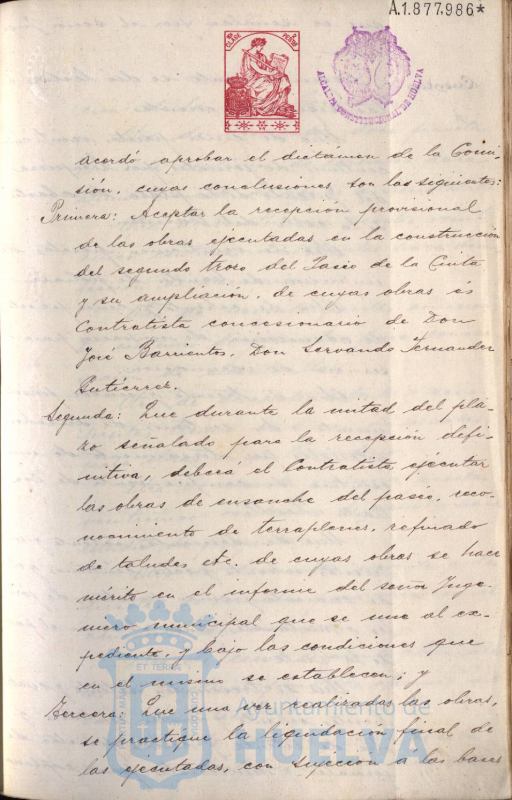 A.1.877.986*
CLASE
PESETA
ALCALDIA CONSTITUCIONAL DE HUELVA
acordó aprobar el dictámen de la Comi-
sión, cuyas conclusiones son las siguientes:
Primera: Aceptar la recepción provisional
de las obras ejecutadas en la construcción
del segundo trozo del Paseo de la Cinta
y su ampliación, de cuyas obras és
Contratista concesionario de Don
José Barrientos, Don Servando Fernandez
Gutiérrez.
Segunda: Que durante la mitad del plá-
zo señalado para la recepción defi-
nitiva, deberá el Contratista ejecutar
las obras de ensanche del paséo, reco-
nocimiento de terraplenes, refinado
de taludes etc. de cuyas obras se hace
mérito en el informe del señor Inge-
niero municipal que se une al ex-
pediente, y bajo las condiciones que
en el mismo se establecen; y
Tercera: Que una vez realizadas las obras,
se practique la liquidación final de
las ejecutadas, con sujeción a las bases
ET TERRA
Ayuntamiento de
HUELVA